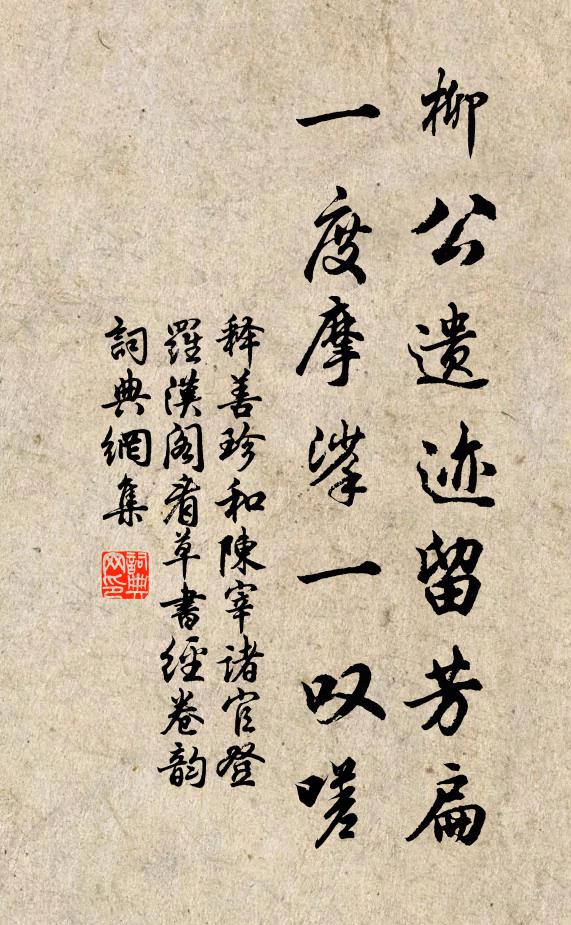 柳公遗迹留芳扁
一度摩挲一叹嗟
释善珍和陳宰诸官登
羅漢阁看草書經卷韵
詞典網集
詞典
网印